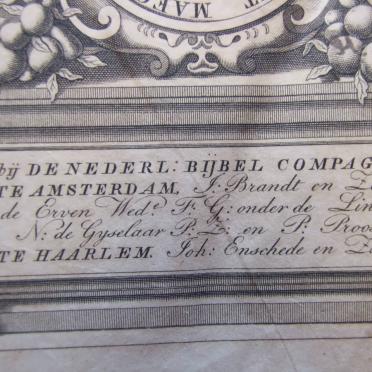 MAEC
bij DE NEDERL: BIJBEL COMPAG
TE AMSTERDAM, J: Brandt en Z
de Erven Wed.e F: G: onder de Lin
N: de Gyselaar P: Z: en P: Proo
TE HAARLEM. Joh: Enschede en Z